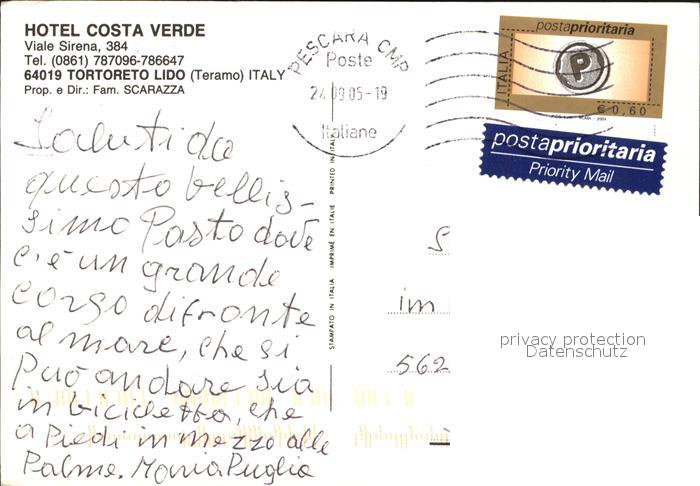 HOTEL COSTA VERDE
Viale Sirena, 384
Tel. (0861) 787096-786647
64019 TORTORETO LIDO (Teramo) ITALY
Prop. e Dir.: Fam. SCARAZZA
Saluti da
questo belliz-
simo Posto dove
c'è un grande
corso difronte
al mare, che si
Può andare sia
in bicicletta, che
a Piedi in mezzo alle
Palme. Maria Puglia
STAMPATO IN ITALIA IMPRIMÉ EN ITALIE PRINTED IN ITALY
PESCARA CMP
Poste
24.09.05-19
Italiane
postaprioritaria
ITALIA
P
€ 0,60
postaprioritaria
Priority Mail
S
im
562
privacy protection
Datenschutz